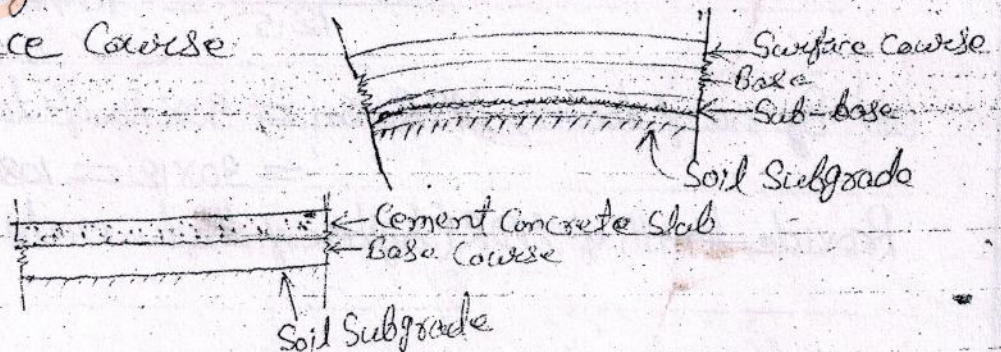 ce Course
Surface Course
Base
Sub-base
Soil Subgrade
Cement Concrete Slab
Base Course
Soil Subgrade